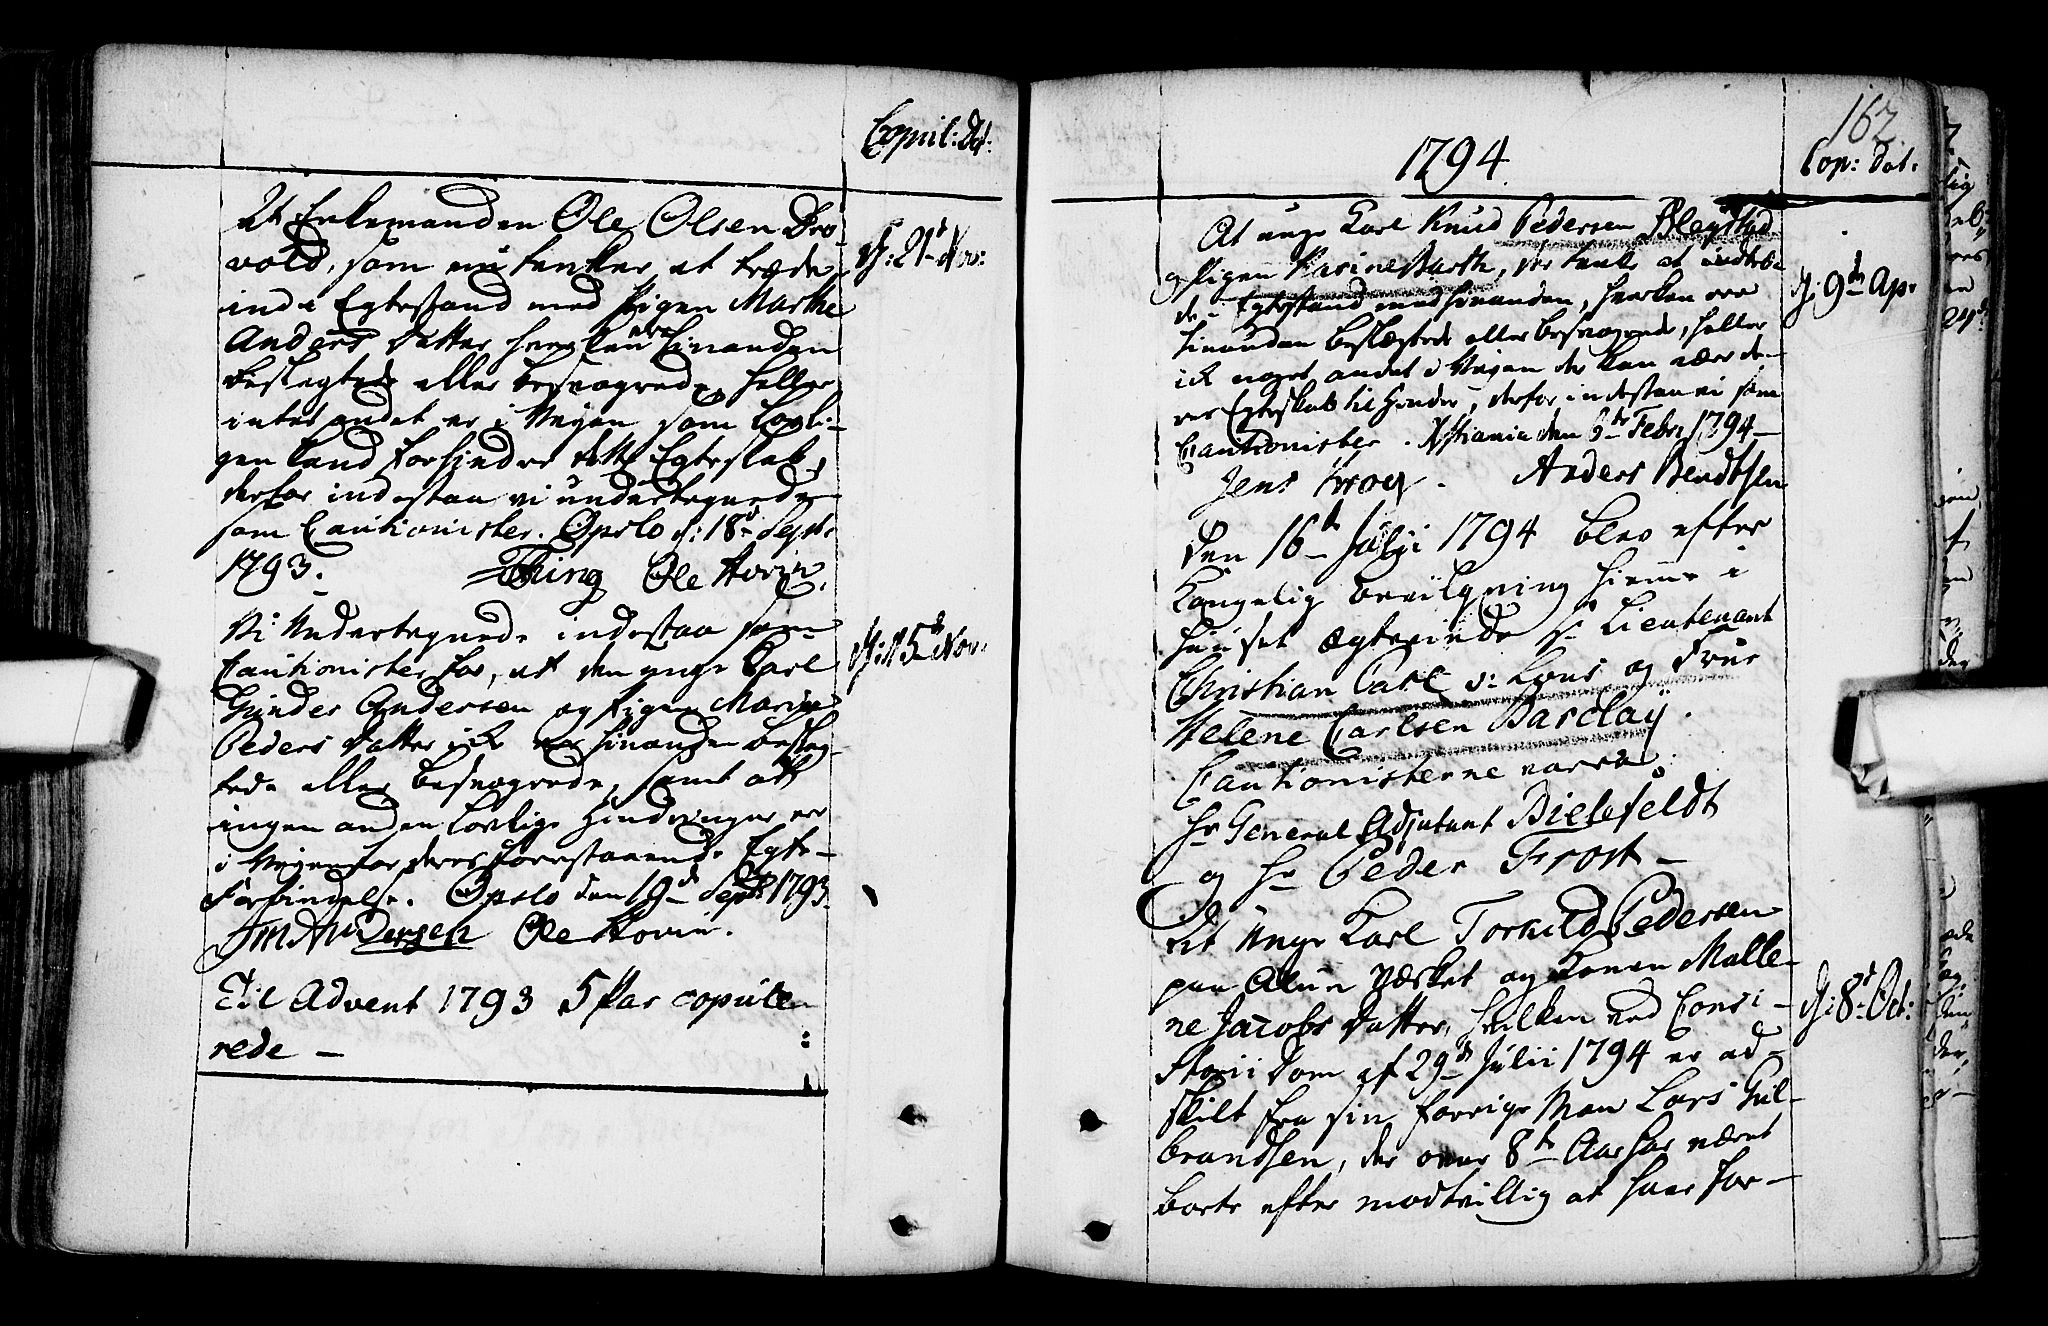 Copul: Dat:
At Enkemanden Ole Olsen Bro-
vold, som nu tenker at træde
ind i Egtestand med Pigen Marthe
Anders Datter hverken ere hinanden
beslegtede eller besvogrede, heller
intet andet er i Veyen som lovli-
gen kand forhindre dette Egteskab,
derfor indestaa vi undertegnede
som Cautionister. Opslo d: 18d Sept:
1793. Thüng Ole Hovin.
d: 21d Nov:
Vi Undertegnede indestaa som
Cautionister for, at den unge Carl
Gunder Andersen og Pigen Marie
Peders Datter ick er hinanden besleg-
tede eller besvogrede, samt at
ingen anden lovlige Hindringer er
i Veyen for deres forestaaende Egte-
Forbindelse. Opslo den 19d Sept: 1793.
Jm Andersen Ole Hovin.
d: 15d Nov:
Til Advent 1793 5 Par copule-
rede —
162
1794
Cop: Dat:
At unge Karl Knud Pedersen Bleystad
og Pigen Karine Barth, der tenke at indtræ-
de i Egtestand med hinanden, hverken ere
hinanden beslægtede eller besvogrede, heller
ick noget andet i Veyen der kan være de-
res Egteskab til Hinder, derfor indestaa vi som
Cautionister. Xstiania den 6te Febr: 1794—
Jens Krog. Anders Bendtsen
d: 9de Ap:
Den 16de Julji 1794 blev efter
Kongelig bevilgning hiemme i
Huuset ægteviede Hr Lieutenant
Christian Carl v: Lous og Frue
Helene Carlsen Barclaÿ.
Cautionisterne varre:
Hr General Adjutant Bielefeldt
og Hr Peder Frost —
At Unge Karl Torkild Pedersen
paa Alun Værket og Konen Malle-
ne Jacobs Datter, hvilken ved Consi-
storii Dom af 29de Julii 1794 er ad-
skilt fra sin forrige Man Lars Gul-
brandsen, der over 8te Aar har været
borte efter modtvillig at have for-
d: 8d Oct: